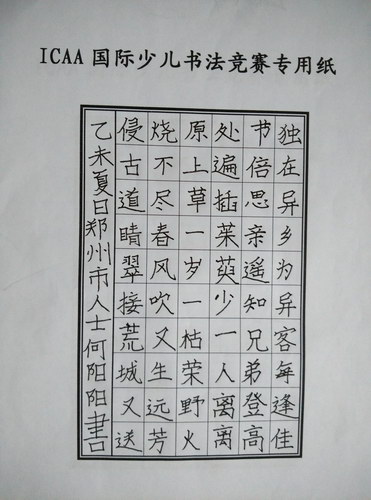 ICAA 国际少儿书法竞赛专用纸
独在异乡为异客每逢佳
节倍思亲遥知兄弟登高
处遍插茱萸少一人离离
原上草一岁一枯荣野火
烧不尽春风吹又生远芳
侵古道晴翠接荒城又送
乙未夏日郑州市人士何阳阳書